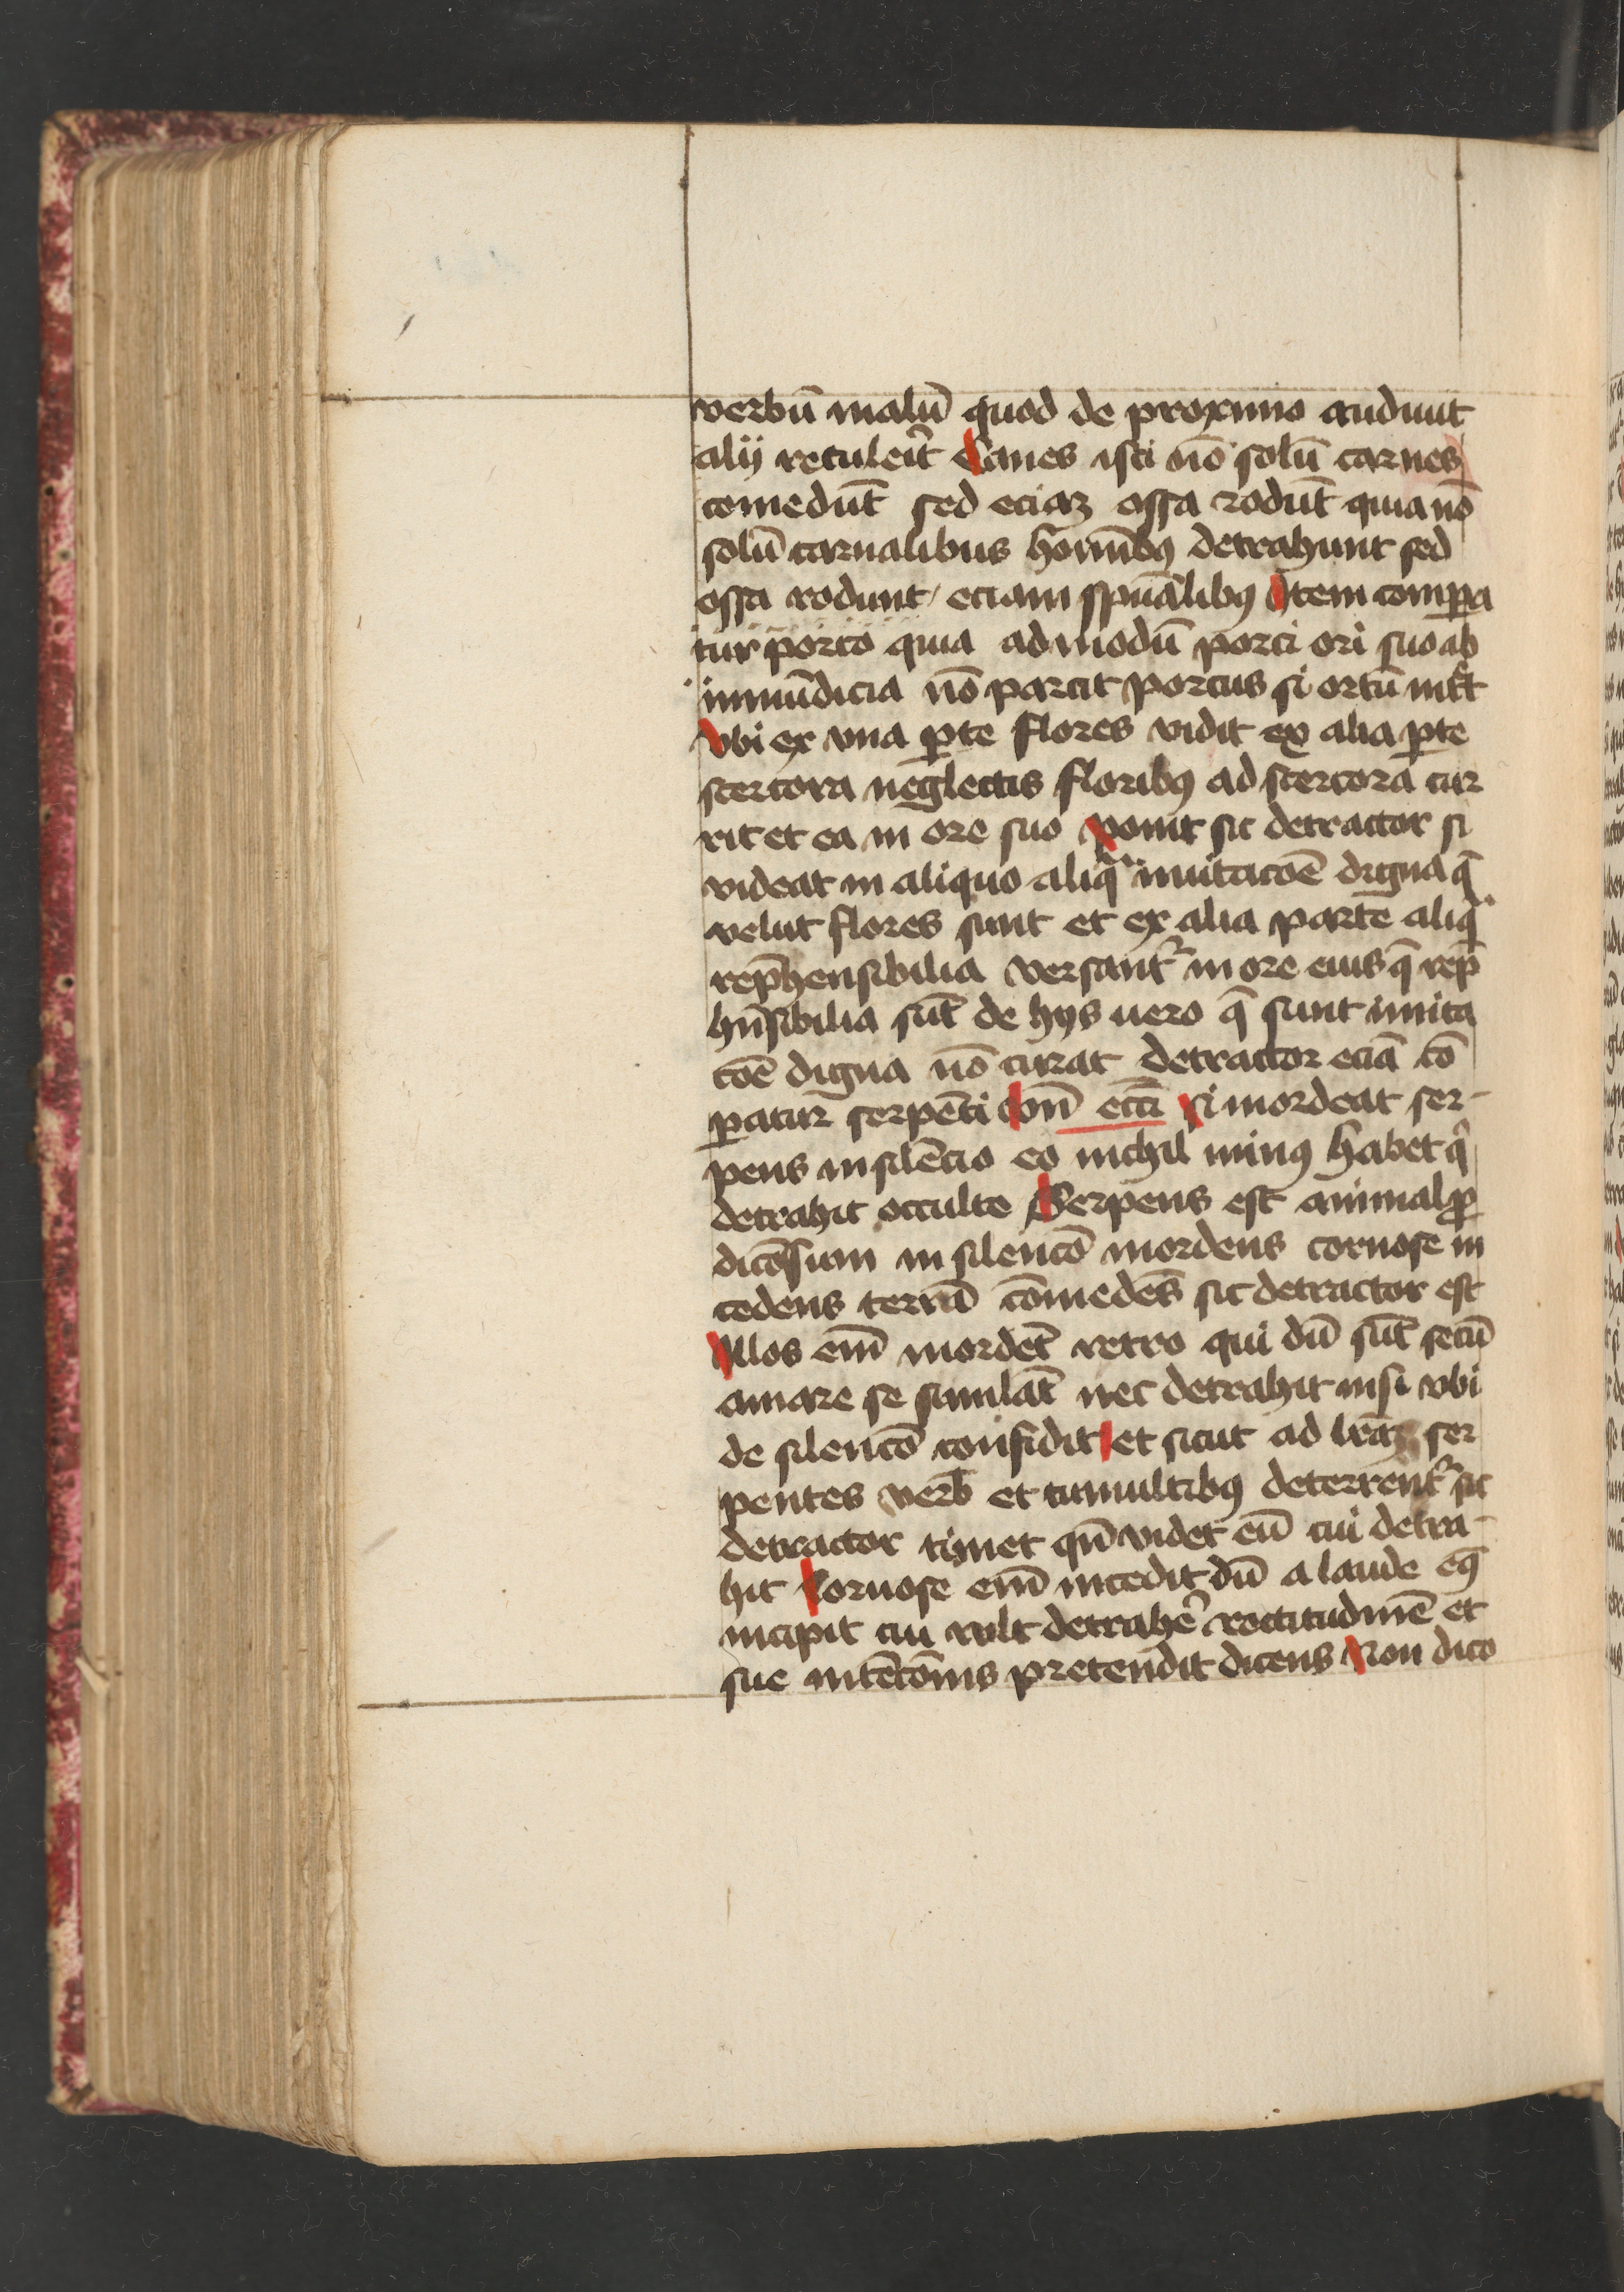 verbū malū quod de proximo audiuit
alij retuleīt Canes isti nō solū carnes
comedūt sed eciaʒ ossa rodūt quia nō
solū carnalibus hoīmbꝰ detrahunt sed
ossa rodunt / eciam sp̄ualibꝰ Item compa
tur porco quia ad modū porci ori suo ab
immūdicia nō parcit porcus si ortū int̄t
vbi ex vna ꝑte flores vidit ex alia ꝑte
stercora neglectis floribꝰ ad stercora cur
rit et ea in ore suo ponit sic detractor si
videat in aliquo aliqᵃ imitacōē digna q̄
velut flores sunt et ex alia parte aliqᵃ
rep̄hensibilia versant᷑ in ore eius q̄ rep̄
hn̄sibilia sūt de hijs uero q̄ sunt imita
cōē digna nō curat detractor eciā cō
ꝑatur serpēti vn̄ ecc̄i si mordeat ser-
pens in silēcio eo nichil minꝰ habet qⁱ
detrahit occulte Serpens est animal ꝓ
dicōsum in silencō mordens toruose in
cedens terrā cōmedēs sic detractor est
Illos em̄ mordet retro qui dū sūt secū
amare se simulāt nec detrahit nisi vbi
de silencō confidit et sicut ad ser
pentes verb̄ et tumultibꝰ deterrent᷑ sic
detractor timet qn̄ videt eū cui detra-
hit Toruose em̄ incedit dū a laude eiꝰ
incipit cui vult detrahē rectitudinē et
sue intēcōnis pretendit dicens Non dico